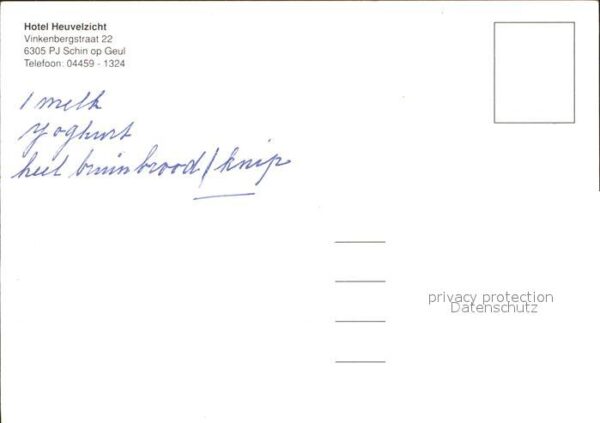 Hotel Heuvelzicht
Vinkenbergstraat 22
6305 PJ Schin op Geul
Telefoon: 04459 - 1324
1 melk
yoghurt
heel bruinbrood / knip
privacy protection
Datenschutz